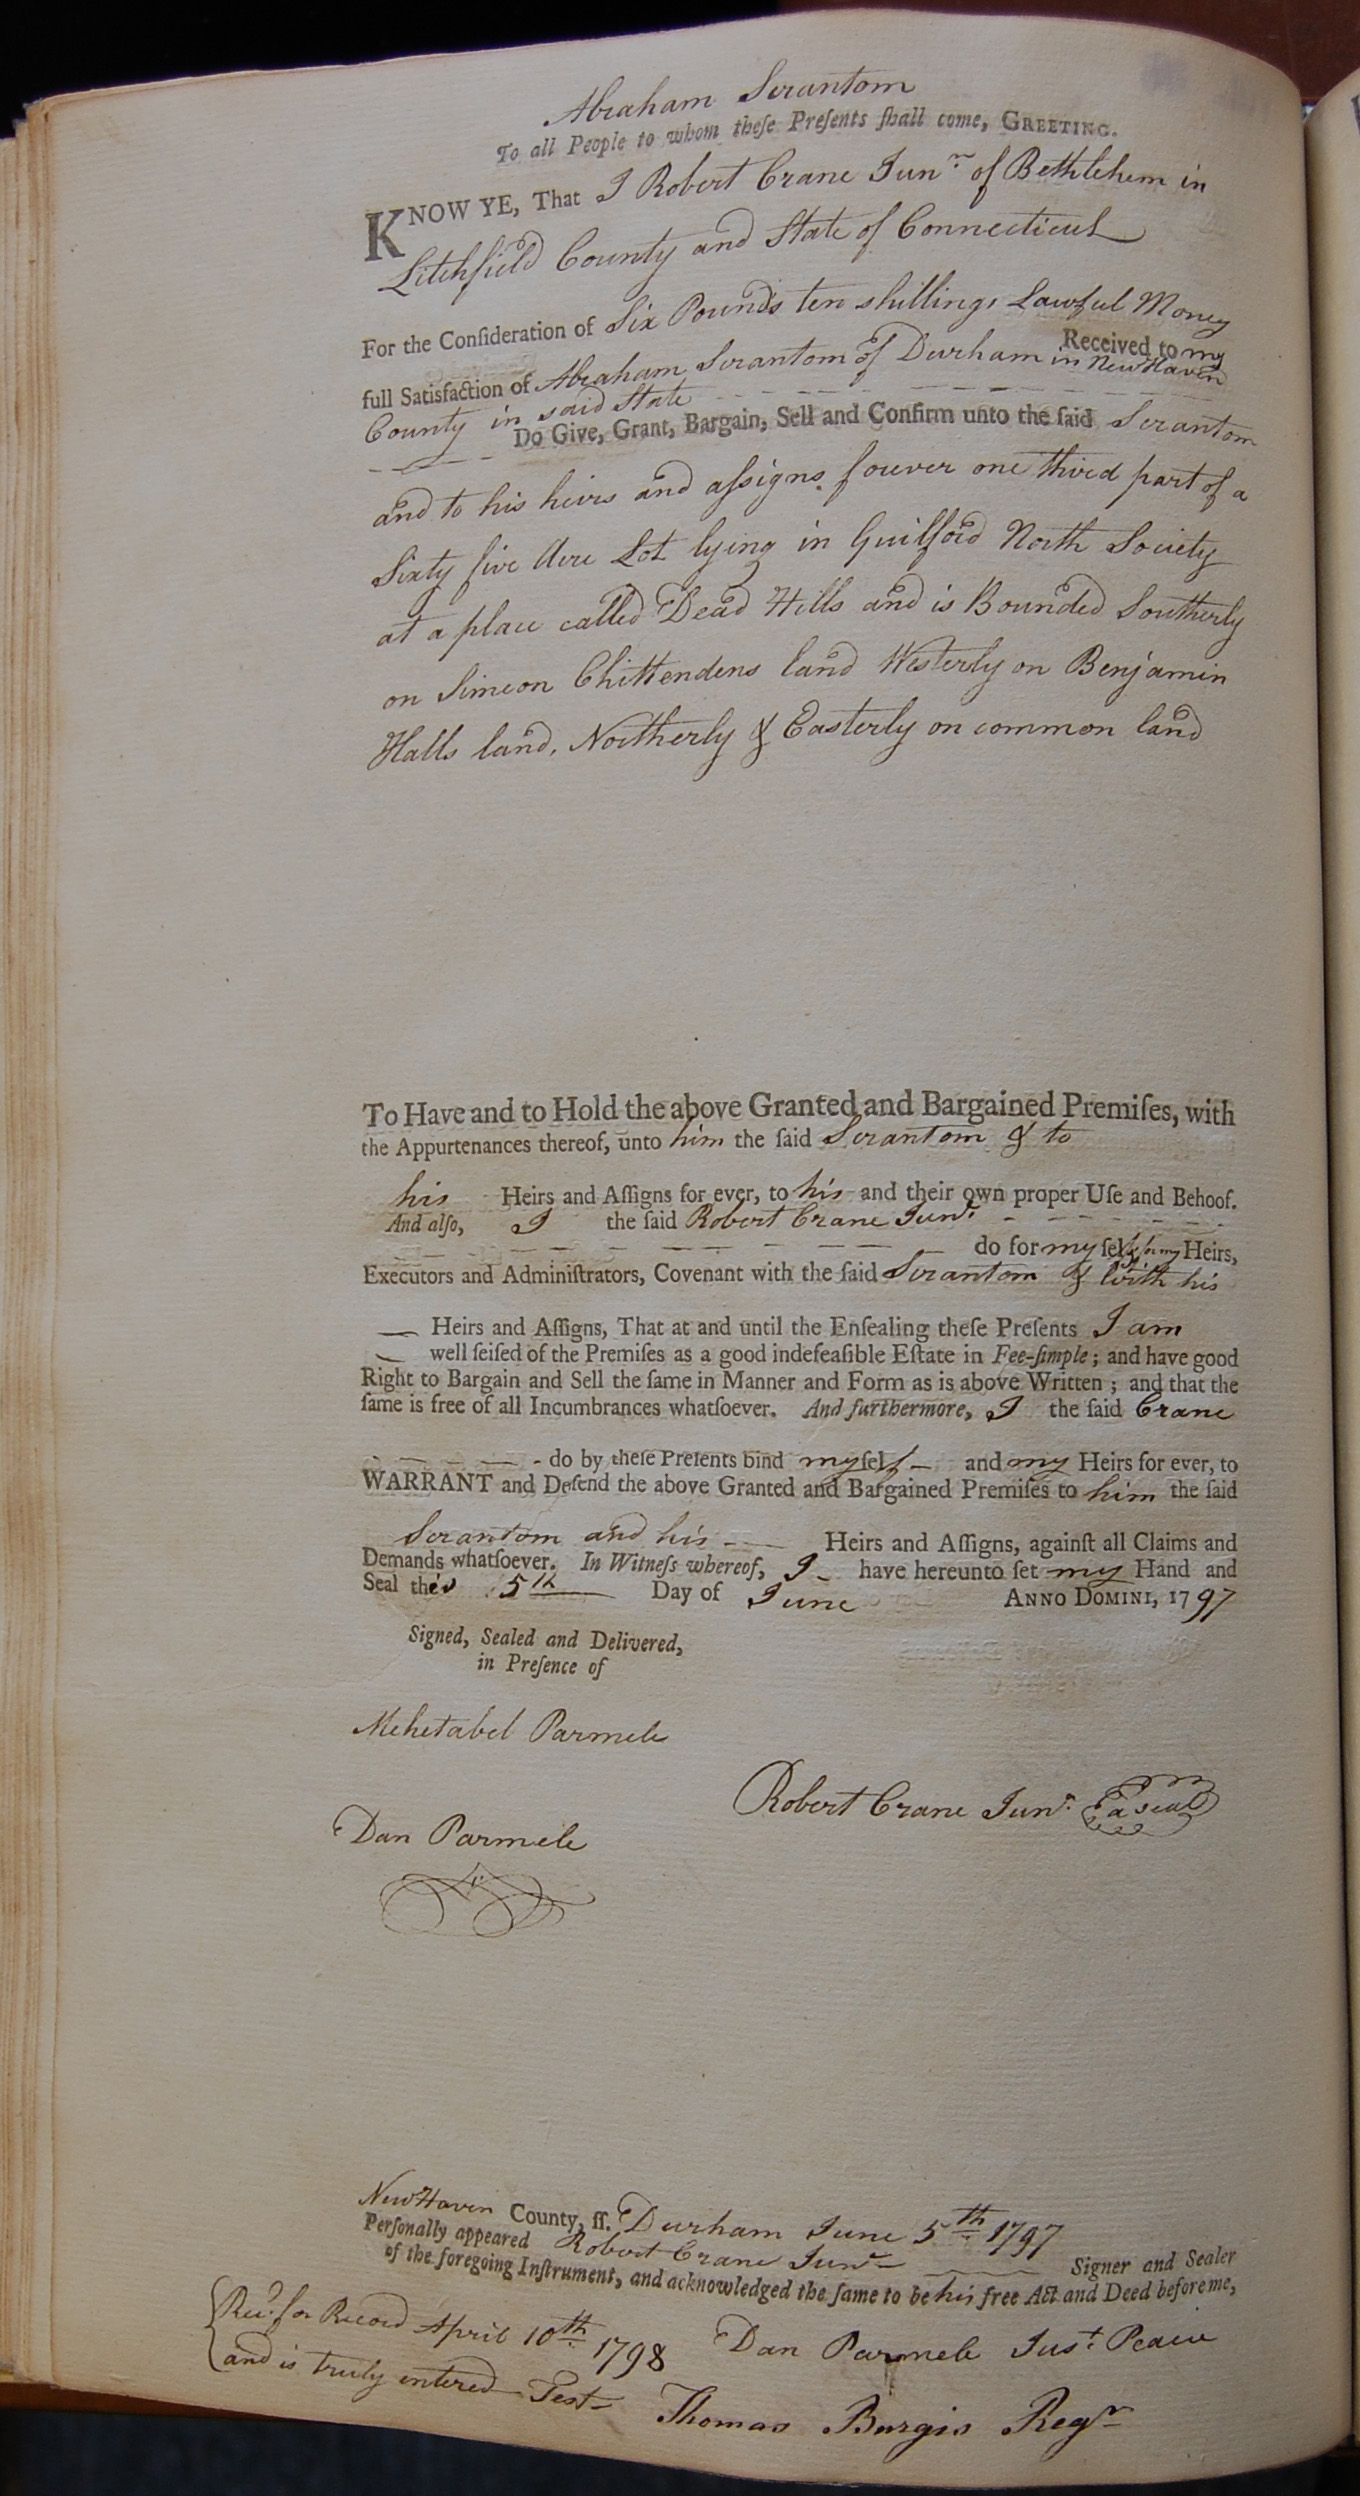 Abraham Scrantom
To all People to whom theſe Preſents ſhall come, GREETING.
KNOW YE, That I Robert Crane Junr. of Bethlehem in
Litchfield County and State of Connecticut
For the Conſideration of Six Pounds ten shillings Lawful Money
Received to my
full Satisfaction of Abraham Scrantom of Durham in New Haven
County in said State
Do Give, Grant, Bargain, Sell and Confirm unto the ſaid Scrantom
and to his heirs and aſsigns forever one third part of a
Sixty five Acre Lot lying in Guilford North Society
at a place called Dead Hills and is Bounded Southerly
on Simeon Chittendens land Westerly on Benjamin
Halls land, Northerly & Easterly on common land
To Have and to Hold the above Granted and Bargained Premiſes, with
the Appurtenances thereof, unto him the ſaid Scrantom & to
his Heirs and Aſſigns for ever, to his and their own proper Uſe and Behoof.
And alſo, I the ſaid Robert Crane Junr.
do for my ſelf & for my Heirs,
Executors and Adminiſtrators, Covenant with the ſaid Scrantom & with his
Heirs and Aſſigns, That at and until the Enſealing theſe Preſents I am
well ſeiſed of the Premiſes as a good indefeaſible Eſtate in Fee-ſimple; and have good
Right to Bargain and Sell the ſame in Manner and Form as is above Written; and that the
ſame is free of all Incumbrances whatſoever. And furthermore, I the ſaid Crane
do by theſe Preſents bind my ſelf and my Heirs for ever, to
WARRANT and Defend the above Granted and Bargained Premiſes to him the ſaid
Scrantom and his Heirs and Aſſigns, againſt all Claims and
Demands whatſoever. In Witneſs whereof, I have hereunto ſet my Hand and
Seal this 5th Day of June ANNO DOMINI, 1797
Signed, Sealed and Delivered,
in Preſence of
Mehetabel Parmele
Robert Crane Junr. a seal
Dan Parmele
New Haven County, ſſ. Durham June 5th 1797
Perſonally appeared Robert Crane Junr Signer and Sealer
of the foregoing Inſtrument, and acknowledged the ſame to be his free Act and Deed before me,
Dan Parmele Just. Peace
Recd. for Record April 10th 1798
and is truly entered Test Thomas Burgis Regr